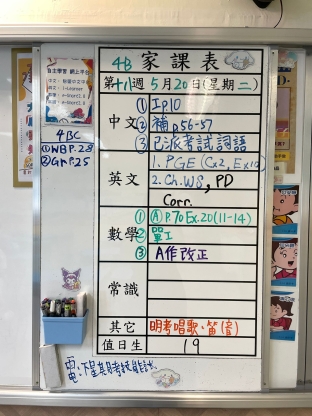 自主學習 網上平台
4BC
①NB P.28
②GM P.25
4B 家課表
第十八週 5月20日(星期二)
中文
① 工p10
② 補p56-57
③ 已派考試詞語
英文
1. PGE (Cx2, Ex1
2. Ch.WS, PD
Corr.
數學
① Ⓐ P.70 Ex.20(11-14)
② 單工
③ A作改正
常識
其它 明考唱歌、笛(音)
值日生 19